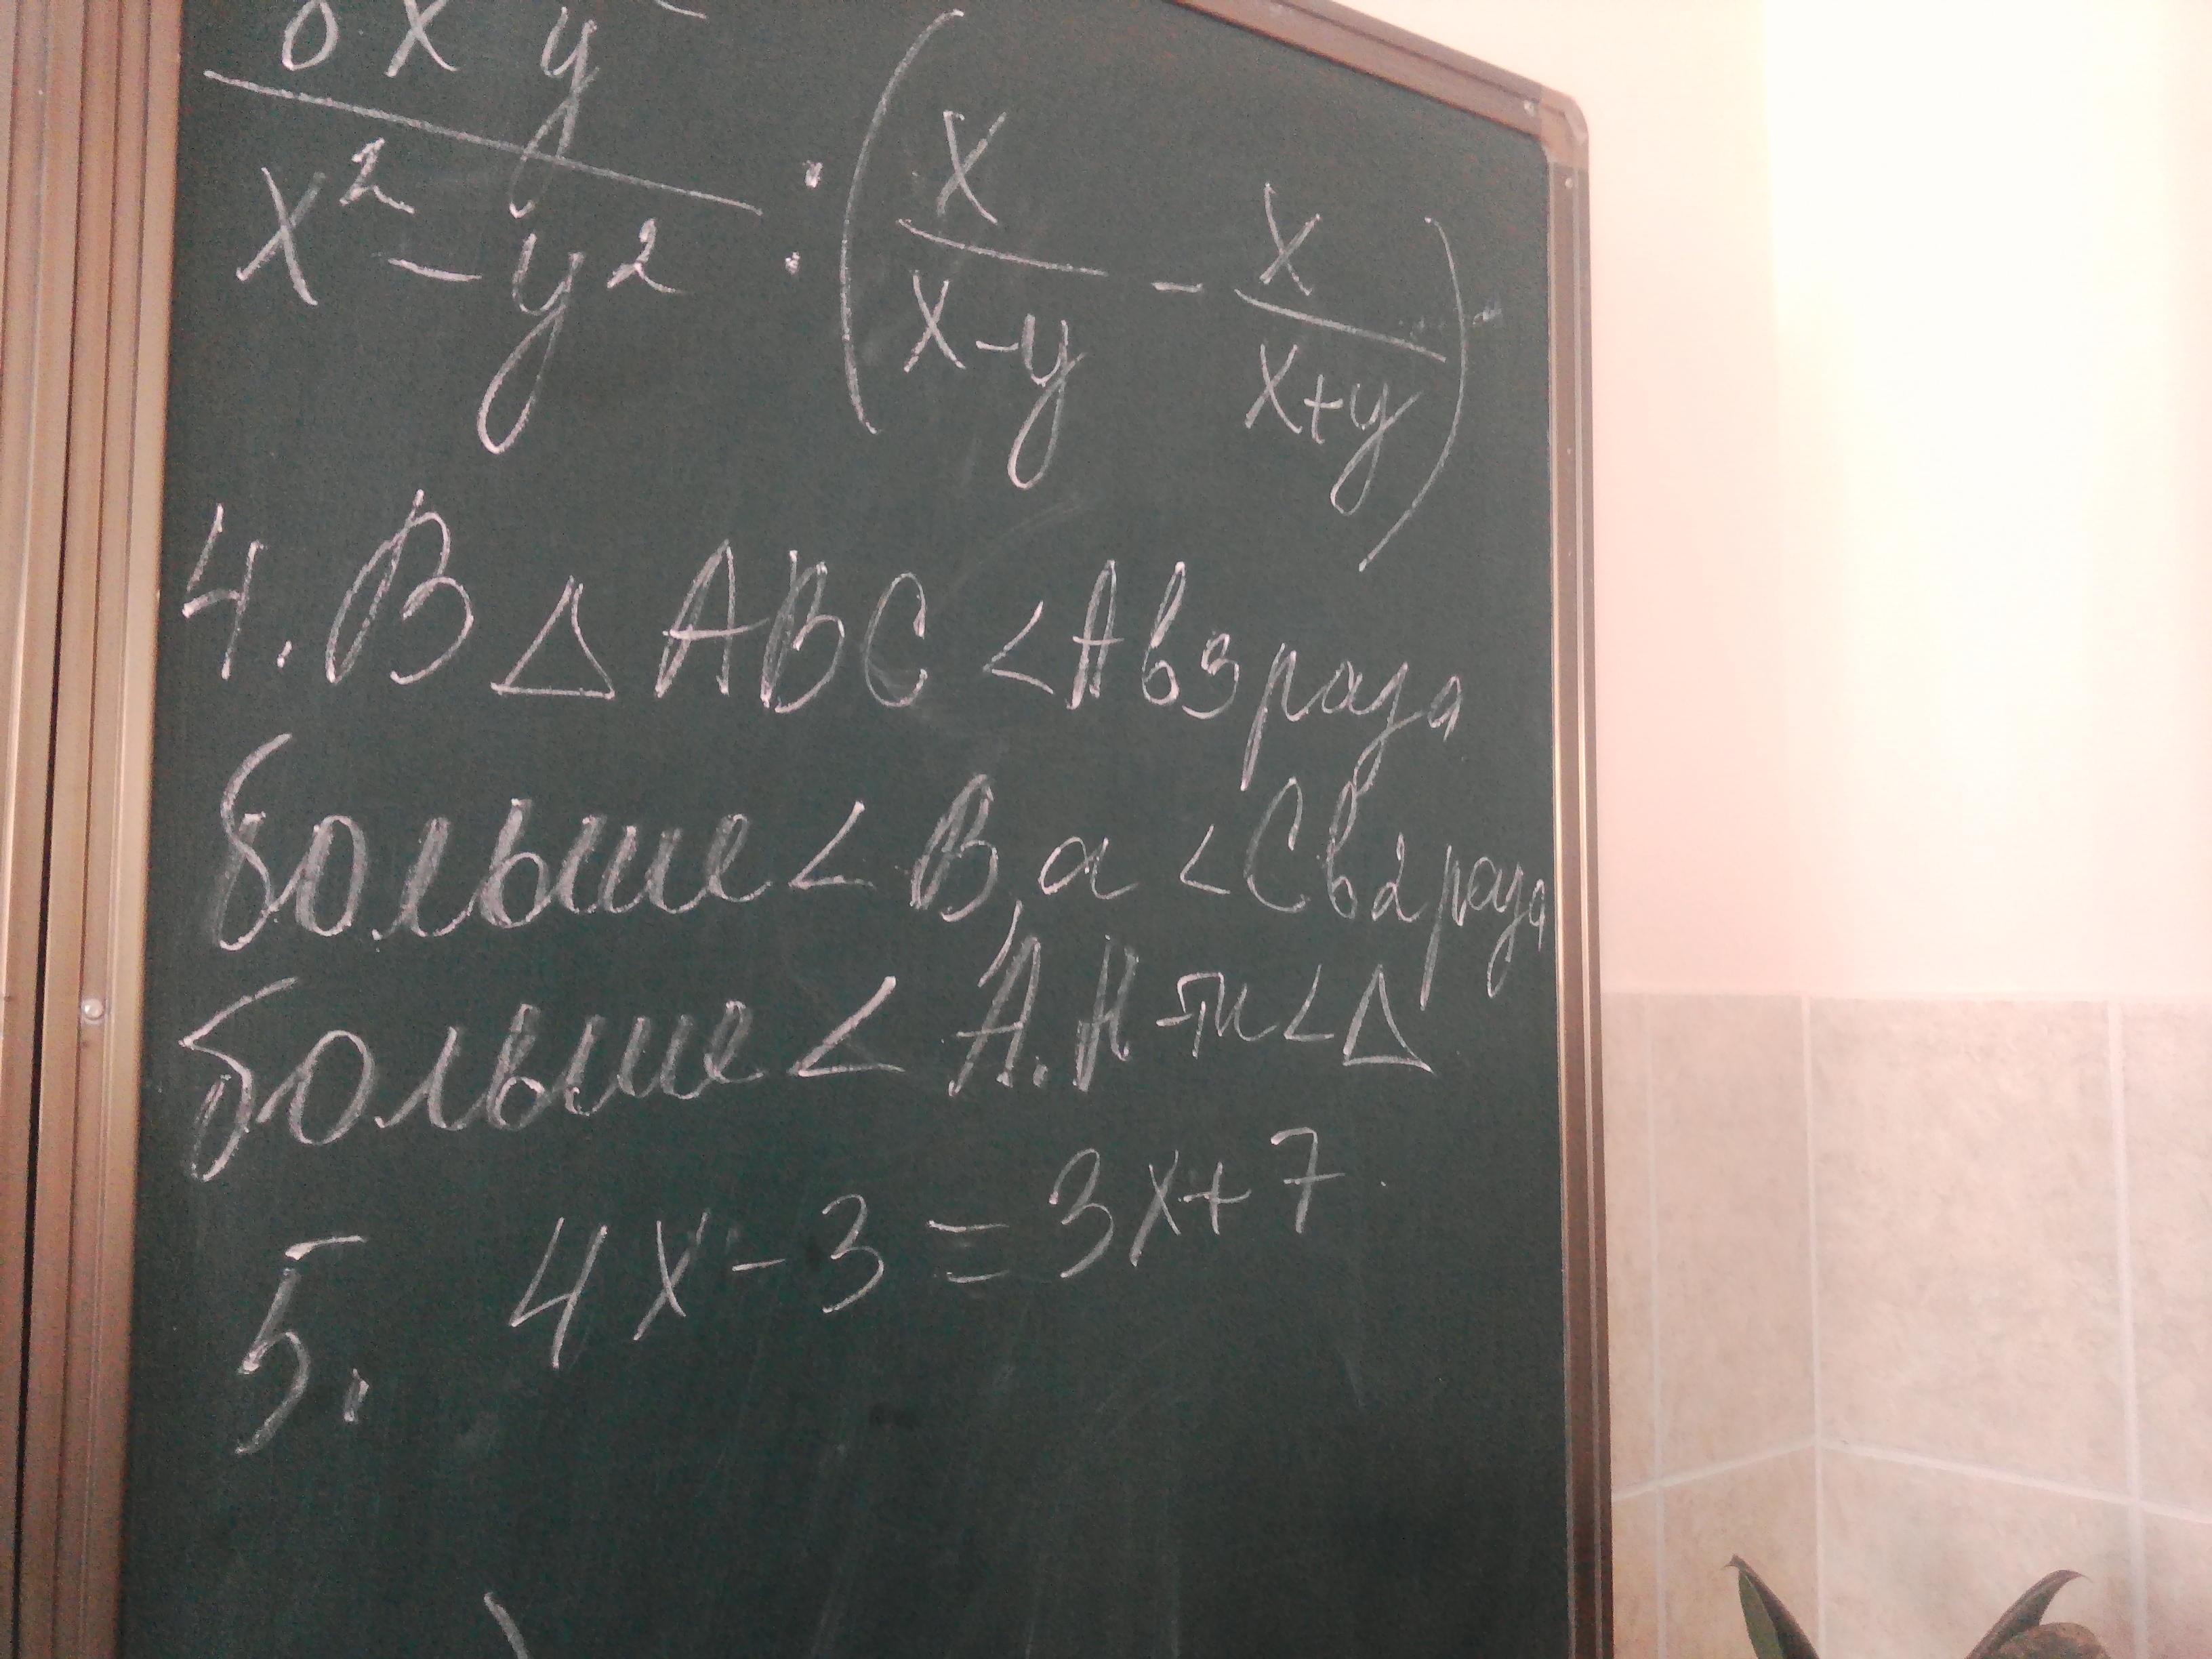 x y
x² - y² : ( x / x-y - x / x+y )
4. В △ АВС <А в 3 раза
больше < В, а < С в 2 раза
больше < А. Н-ти < △
5. 4x - 3 = 3x + 7